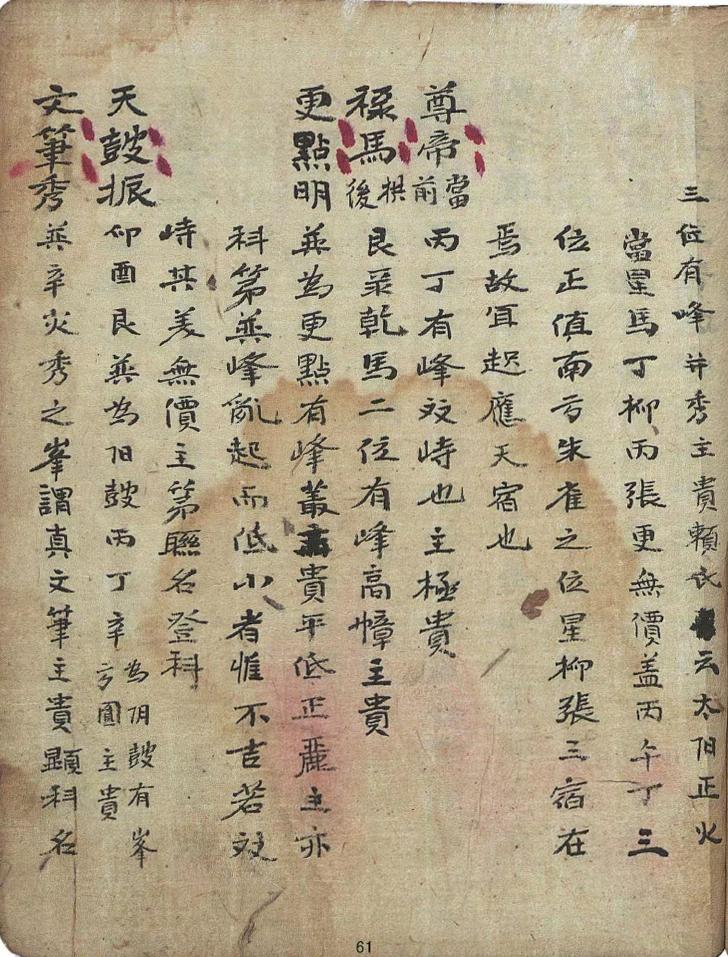 三位有峰并秀主貴賴氏云太阳正火
當星馬丁柳丙張更無價盖丙午丁三
位正值南方朱雀之位星柳張三宿在
焉故冝起應天宿也
尊帝當前丙丁有峰双峙也主極貴
祿馬拱後艮巽乾馬二位有峰高幛主貴
更點明巽為更點有峰叢貴平低正麗主亦
科第巽峰亂起而低小者惟不吉若双
峙其羙無價主第聯名登科
天鼓振卯酉艮巽為阳鼓丙丁辛為阴鼓有峯方圓主貴
文筆秀巽辛火秀之峯謂真文筆主貴顯科名
61